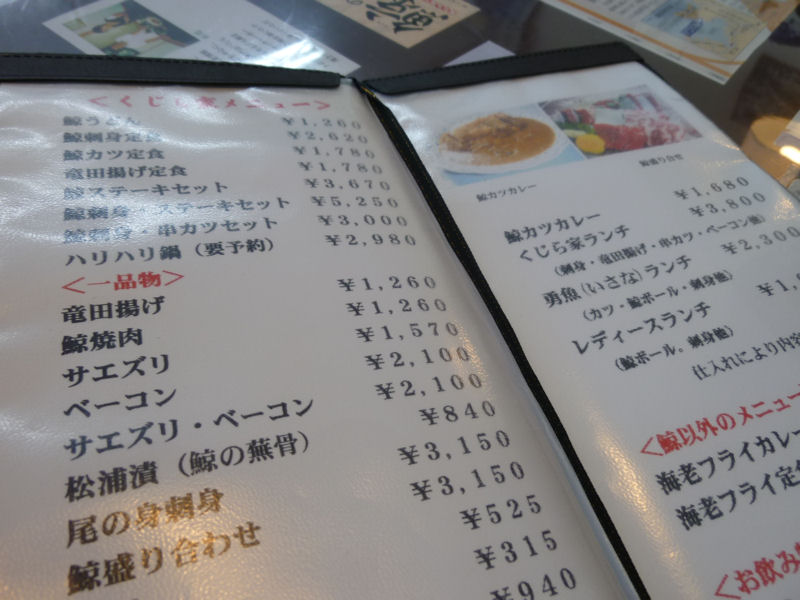 <くじら家メニュー>
鯨うどん ¥1,260
鯨刺身定食 ¥2,620
鯨カツ定食 ¥1,780
竜田揚げ定食 ¥1,780
鯨ステーキセット ¥3,670
鯨刺身・ステーキセット ¥5,250
鯨刺身・串カツセット ¥3,000
ハリハリ鍋(要予約) ¥2,980
<一品物>
竜田揚げ ¥1,260
鯨焼肉 ¥1,260
サエズリ ¥1,570
ベーコン ¥2,100
サエズリ・ベーコン ¥2,100
松浦漬(鯨の蕪骨) ¥840
尾の身刺身 ¥3,150
鯨盛り合わせ ¥3,150
¥525
¥315
¥940
鯨カツカレー
鯨盛り合せ
鯨カツカレー ¥1,680
くじら家ランチ ¥3,800
(刺身・竜田揚げ・串カツ・ベーコン他)
勇魚(いさな)ランチ ¥2,300
(カツ・鯨ボール・刺身他)
レディースランチ
(鯨ボール。刺身他)
仕入れにより内容
<鯨以外のメニュー
海老フライカレー
海老フライ定食
<お飲み